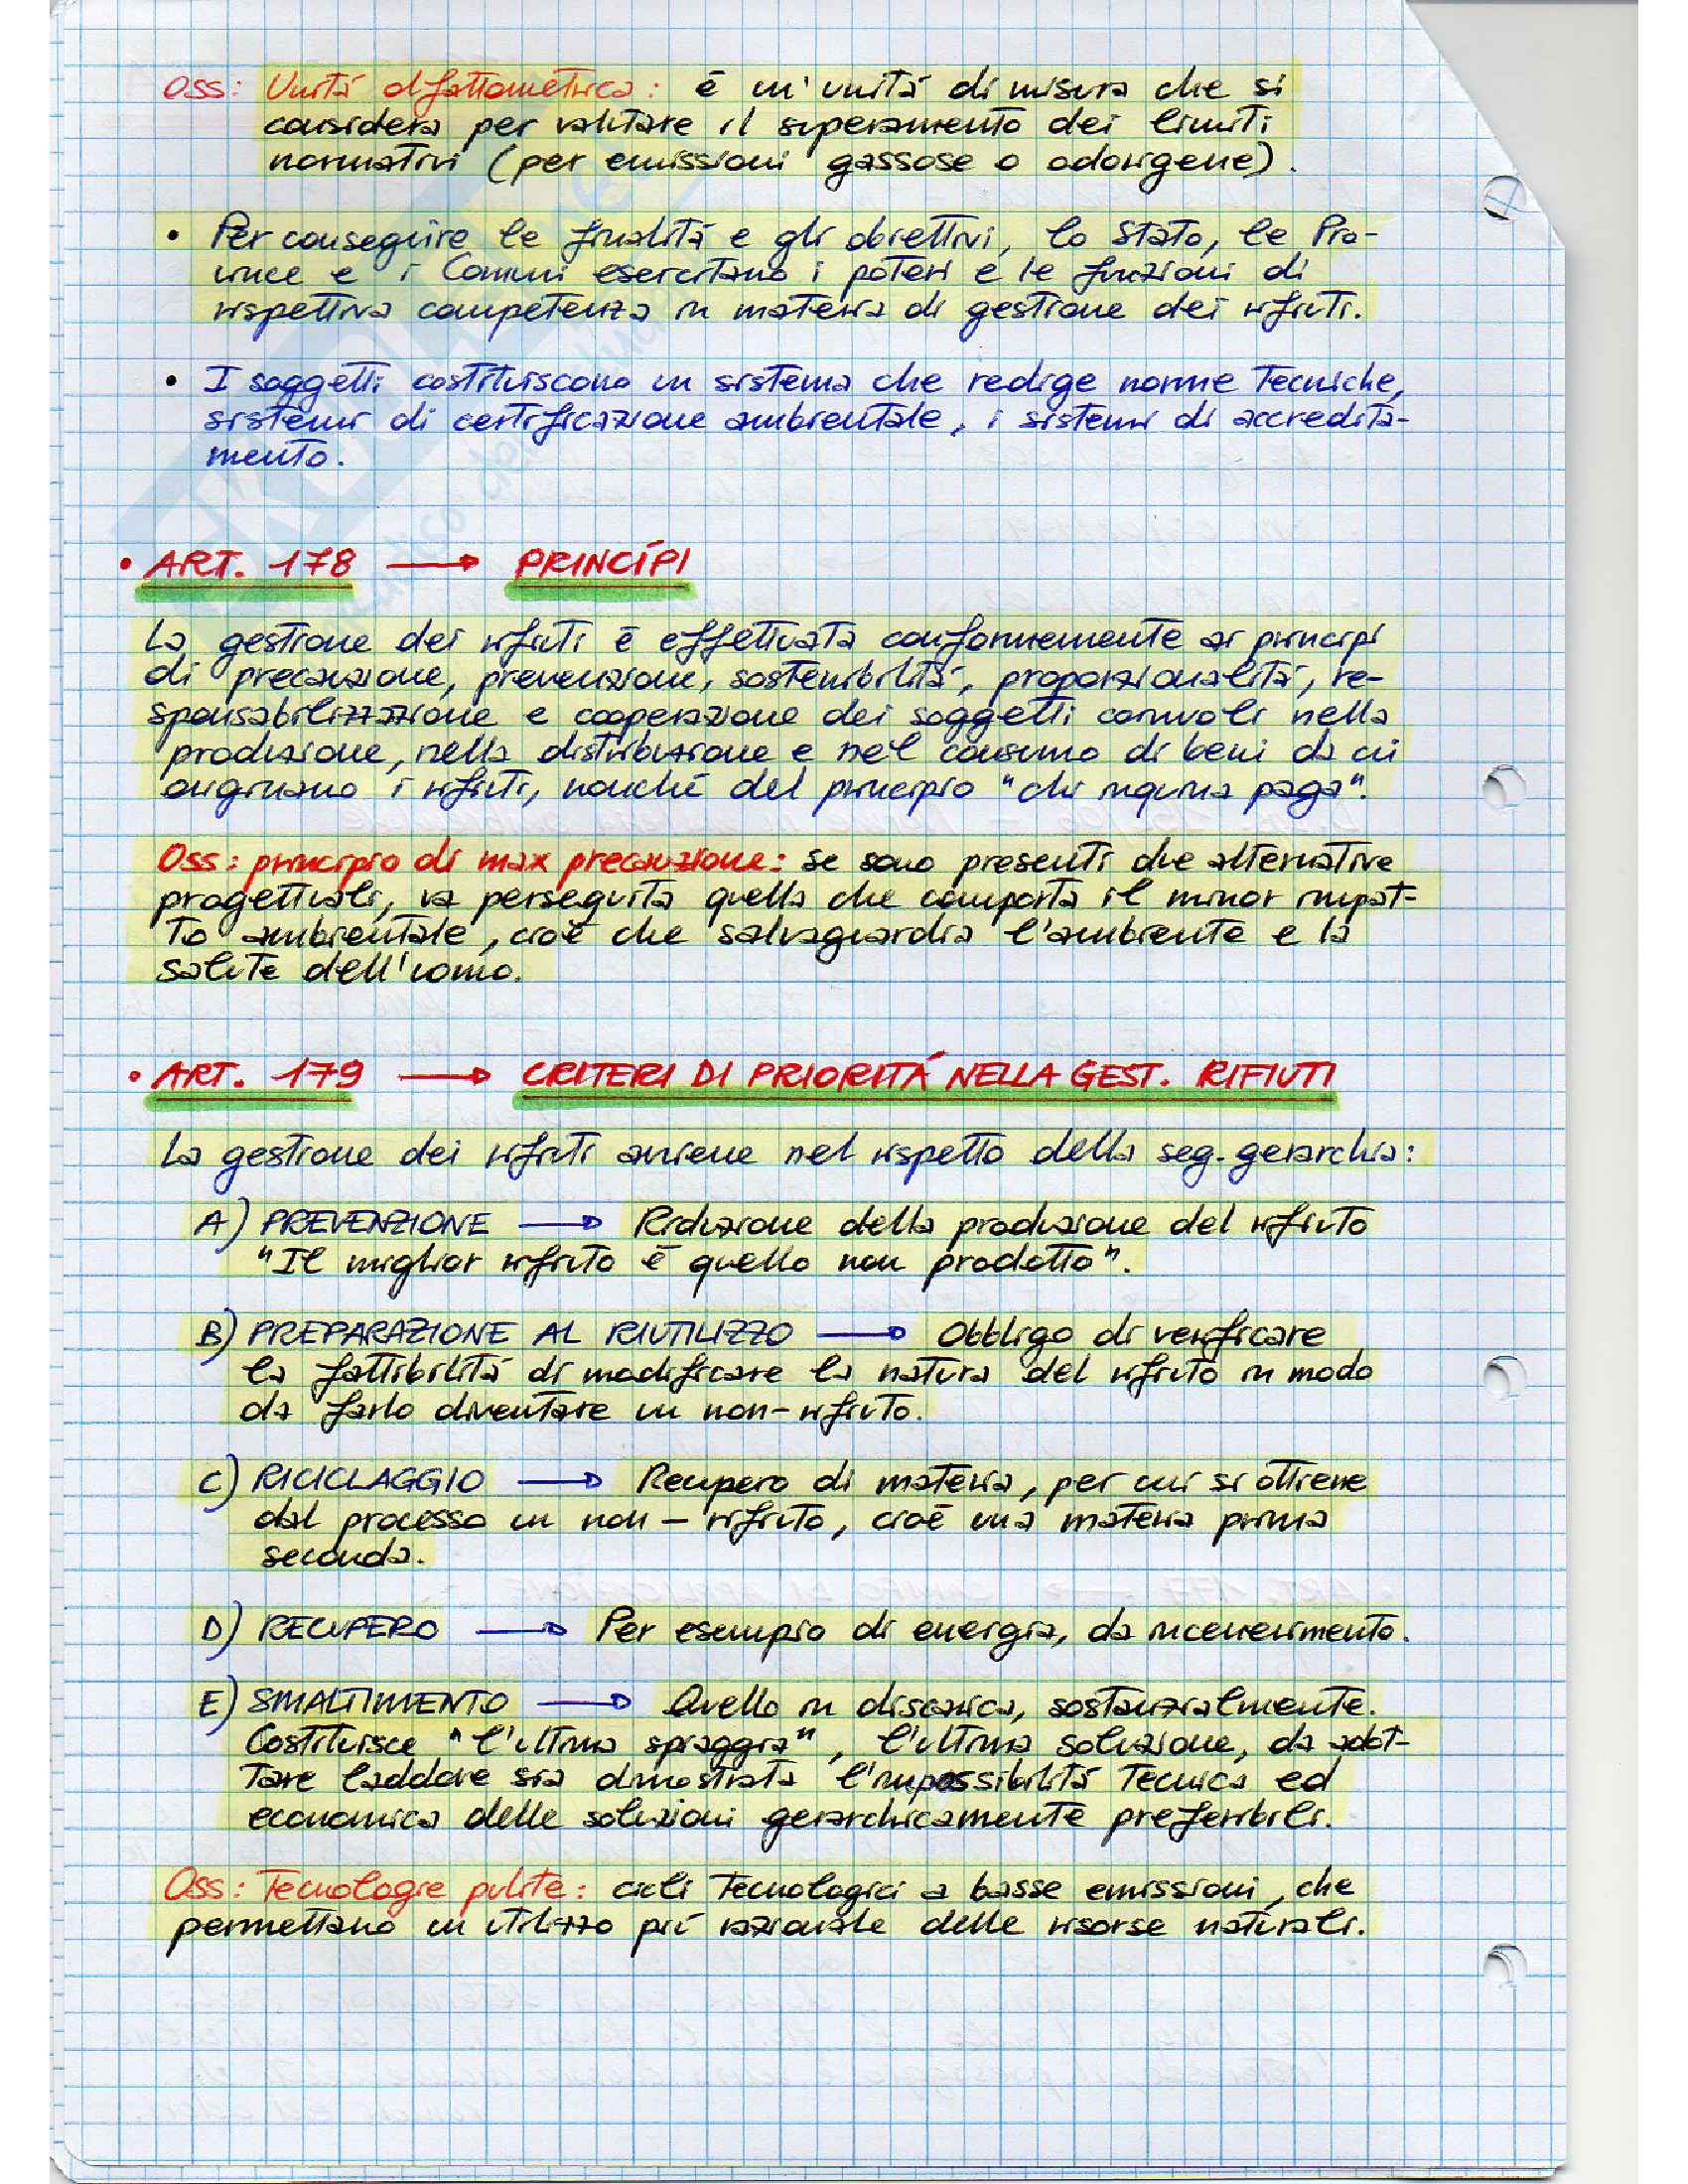 Oss: Unitá olfattometrica: é un'unitá di misura che si
considera per valutare il superamento dei limiti
normativi (per emissioni gassose o odorigene).
• Per conseguire le finalitá e gli obiettivi, lo Stato, le Pro-
vince e i Comuni esercitano i poteri e le funzioni di
rispettiva competenza in materia di gestione dei rifiuti.
• I soggetti costituiscono un sistema che redige norme tecniche,
sistemi di certificazione ambientale, i sistemi di accredita-
mento.
• ART. 178 → PRINCÍPI
La gestione dei rifiuti é effettuata conformemente ai principi
di precauzione, prevenzione, sostenibilitá, proporzionalitá, re-
sponsabilizzazione e cooperazione dei soggetti coinvolti nella
produzione, nella distribuzione e nel consumo di beni da cui
originano i rifiuti, nonché del principio "chi inquina paga".
Oss: principio di max precauzione: se sono presenti due alternative
progettuali, va perseguita quella che comporta il minor impat-
to ambientale, cioé che salvaguardia l'ambiente e la
salute dell'uomo.
• ART. 179 → CRITERI DI PRIORITÁ NELLA GEST. RIFIUTI
La gestione dei rifiuti avviene nel rispetto della seg. gerarchia:
A) PREVENZIONE → Riduzione della produzione del rifiuto
"Il miglior rifiuto é quello non prodotto".
B) PREPARAZIONE AL RIUTILIZZO → Obbligo di verificare
la fattibilitá di modificare la natura del rifiuto in modo
da farlo diventare un non-rifiuto.
C) RICICLAGGIO → Recupero di materia, per cui si ottiene
dal processo un non-rifiuto, cioé una materia prima
seconda.
D) RECUPERO → Per esempio di energia, da incenerimento.
E) SMALTIMENTO → Quello in discarica, sostanzialmente.
Costituisce "l'ultima spiaggia", l'ultima soluzione, da adot-
tare laddove sia dimostrata l'impossibilitá tecnica ed
economica delle soluzioni gerarchicamente preferibili.
Oss: Tecnologie pulite: cicli tecnologici a basse emissioni, che
permettano un utilizzo piú razionale delle risorse naturali.